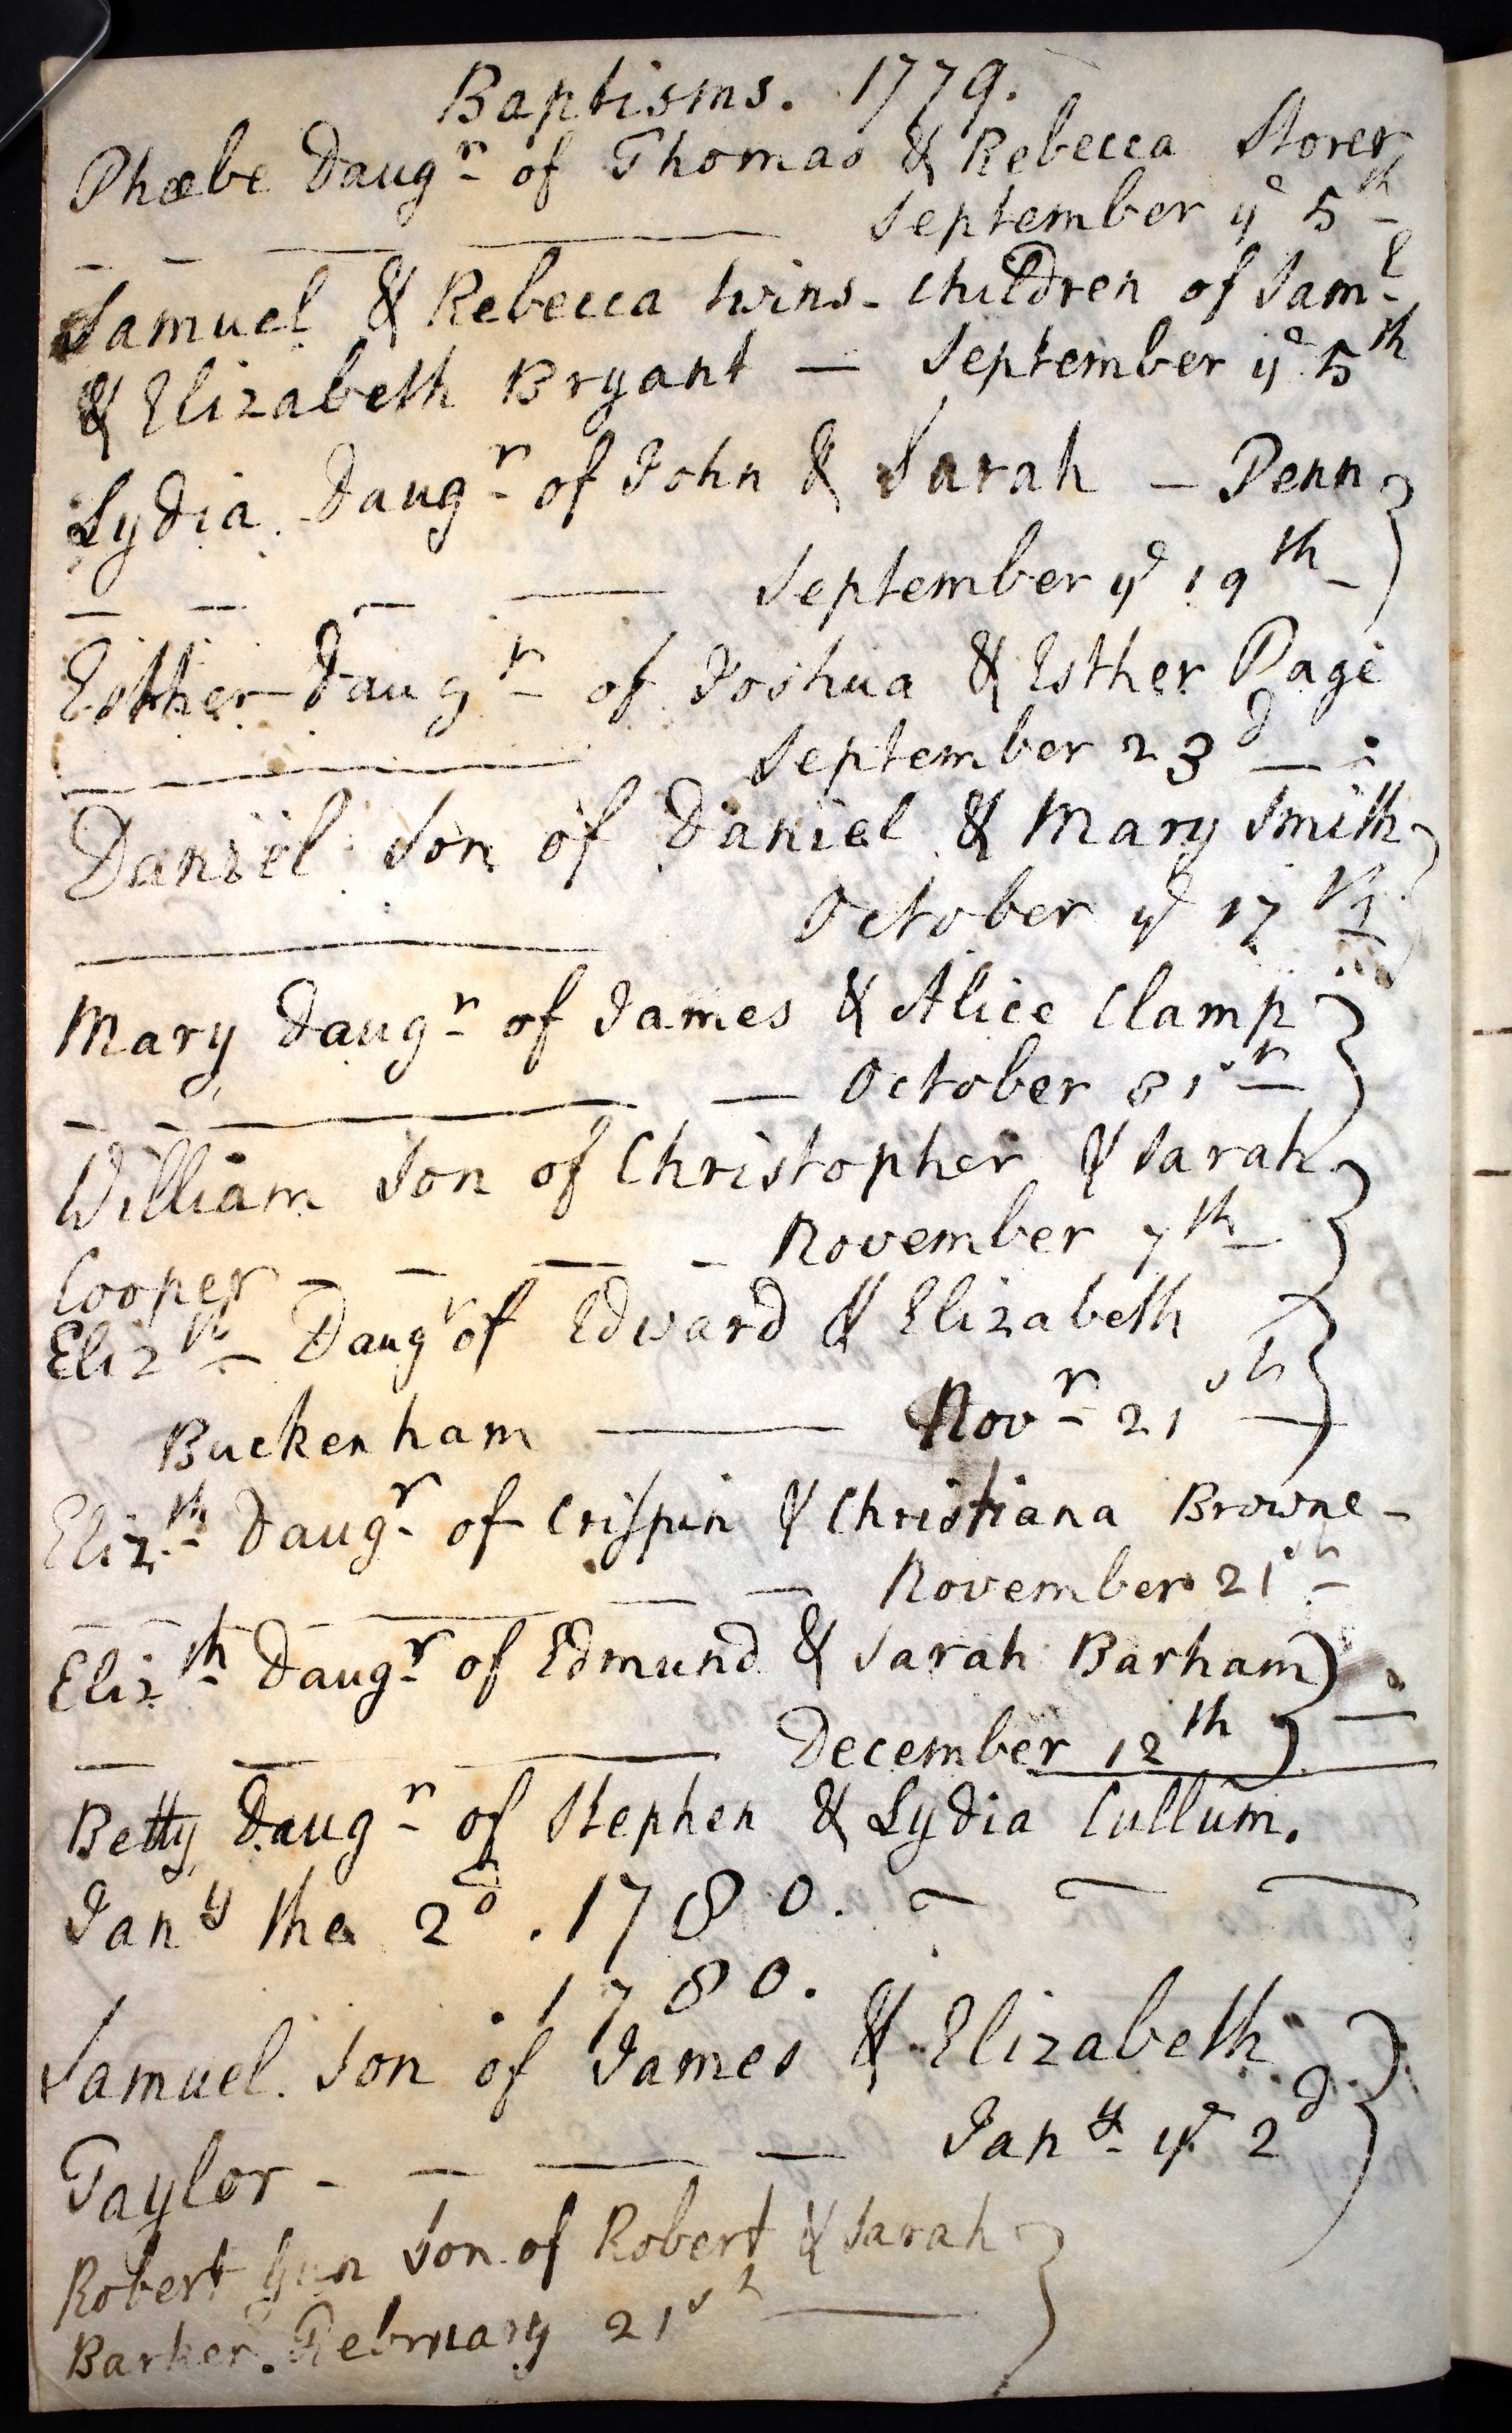 Baptisms. 1779.
Phœbe Daugr of Thomas & Rebecca Storer
September ye 5th
Samuel & Rebecca twins - children of Saml
& Elizabeth Bryant — September ye 5th
Lydia Daugr of John & Sarah — Penn
September ye 19th
Esther Daugr of Joshua & Esther Page
September 23d
Daniel Son of Daniel & Mary Smith
October ye 17th
Mary Daugr of James & Alice Clamp
October 31st
William Son of Christopher & Sarah
Cooper — November 7th
Elizth Daugr of Edward & Elizabeth
Buckenham — Novr 21st
Elizth Daugr of Crispin & Christiana Browne -
November 21st
Elizth Daugr of Edmund & Sarah Barham
December 12th
Betty Daugr of Stephen & Lydia Cullum.
Jany the 2d . 1780.
. 1780.
Samuel. Son of James & Elizabeth
Taylor - — Jany ye 2d
Robert Gun Son of Robert & Sarah
Barker. February 21st